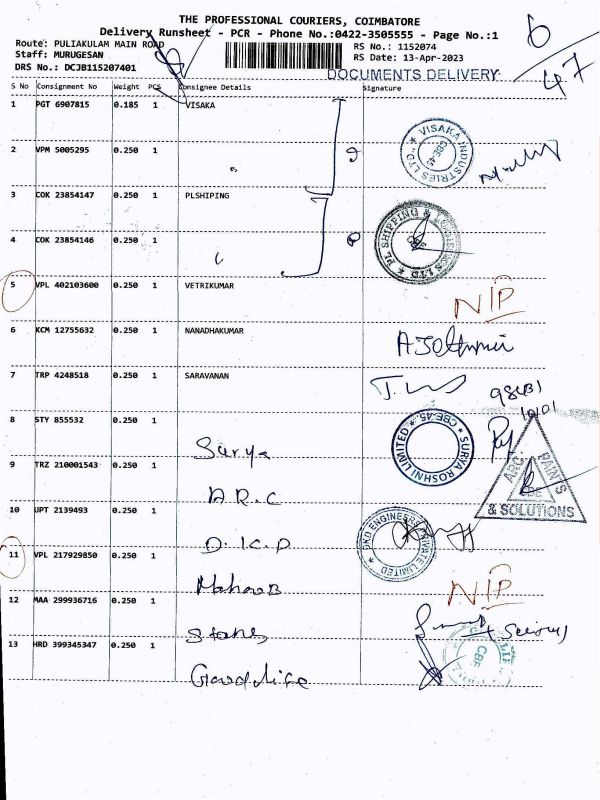 THE PROFESSIONAL COURIERS, COIMBATORE
Delivery Runsheet - PCR - Phone No.:0422-3505555 - Page No.:1
Route: PULIAKULAM MAIN ROAD
Staff: MURUGESAN
DRS No.: DCJB115207401
RS No.: 1152074
RS Date: 13-Apr-2023
DOCUMENTS DELIVERY
6
47
S No Consignment No Weight PCS Consignee Details Signature
1 PGT 6907815 0.185 1 VISAKA
VISAKA INDUSTRIES LTD. CBE-45
2 VPM 5005295 0.250 1 "
3 COK 23854147 0.250 1 PLSHIPING
PL SHIPPING & LOGISTICS LTD
4 COK 23854146 0.250 1
5 VPL 402103600 0.250 1 VETRIKUMAR
N/P
6 KCM 12755632 0.250 1 NANADHAKUMAR
7 TRP 4248518 0.250 1 SARAVANAN
8 STY 855532 0.250 1
Surya
SURYA ROSHNI LIMITED CBE-45
9 TRZ 210001543 0.250 1
A.R.C
ARC PAINTS & SOLUTIONS
10 JPT 2139493 0.250 1
D.K.D
DKD ENGINEERS PRIVATE LIMITED
11 VPL 217929850 0.250 1
N/P
12 MAA 299936716 0.250 1
Stanes
13 HRD 399345347 0.250 1
Goodlife
LIFE CBE